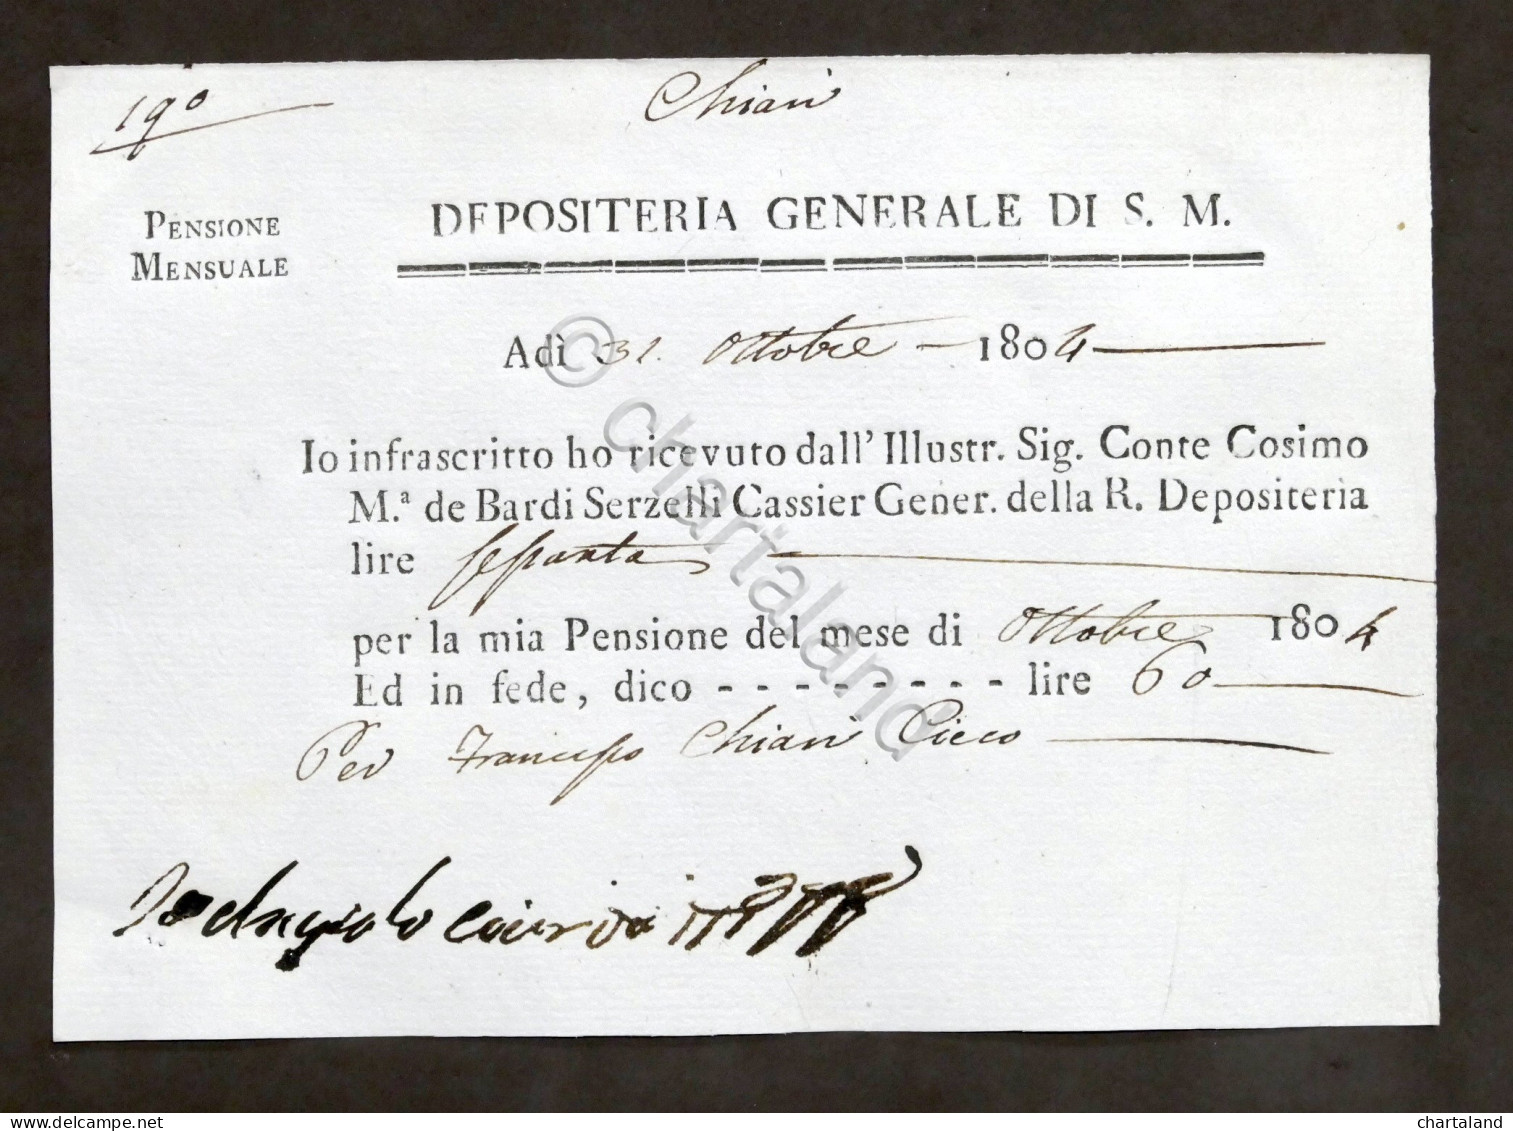 190
Chiari
PENSIONE
MENSUALE
DEPOSITERIA GENERALE DI S. M.
Adì 31. Ottobre 1804
Io infrascritto ho ricevuto dall' Illustr. Sig. Conte Cosimo
M.ª de Bardi Serzelli Cassier Gener. della R. Depositeria
lire sessanta
per la mia Pensione del mese di Ottobre 1804
Ed in fede, dico - - - - - - - - lire 60
Per Francesco Chiari Cieco
Io Angiolo
© chartaland
delcampe.net
chartaland